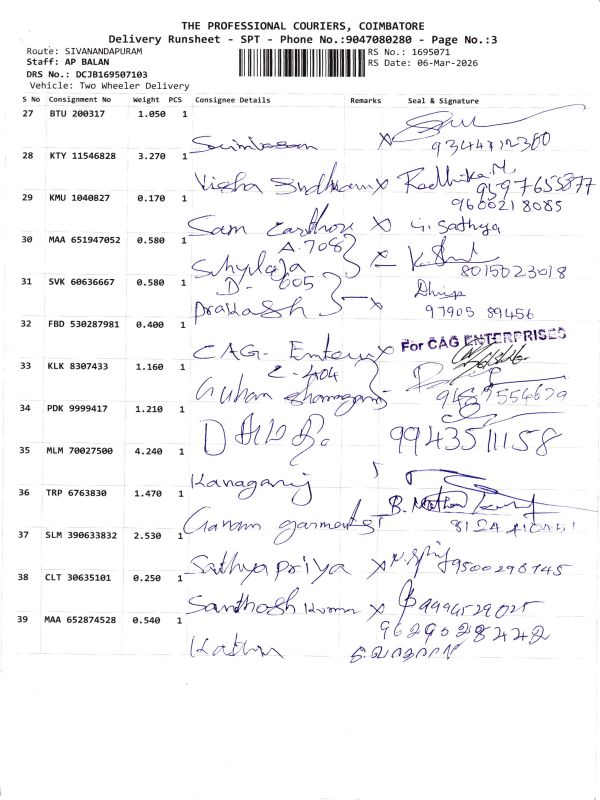 THE PROFESSIONAL COURIERS, COIMBATORE
Delivery Runsheet - SPT - Phone No.:9047080280 - Page No.:3
Route: SIVANANDAPURAM
RS No.: 1695071
Staff: AP BALAN
RS Date: 06-Mar-2026
DRS No.: DCJB169507103
Vehicle: Two Wheeler Delivery
S No Consignment No Weight PCS Consignee Details Remarks Seal & Signature
27 BTU 200317 1.050 1
Srinivasan x 9344412300
28 KTY 11546828 3.270 1
Visha Sindhram x Radhika.M 9597655877
29 KMU 1040827 0.170 1
9600218085
Sam x G. Sathya
30 MAA 651947052 0.580 1
A.708
8015023018
31 SVK 60636667 0.580 1
D- 605
Prakash x 97905 89456
32 FBD 530287981 0.400 1
CAG- x For CAG ENTERPRISES
33 KLK 8307433 1.160 1
E-404
Guhan
34 PDK 9999417 1.210 1
9943511158
35 MLM 70027500 4.240 1
Kanagaraj
36 TRP 6763830 1.470 1
garments
37 SLM 390633832 2.530 1
Sathyapriya x 9500298745
38 CLT 30635101 0.250 1
Santhosh Kumar x 9994529025
39 MAA 652874528 0.540 1
9629028442